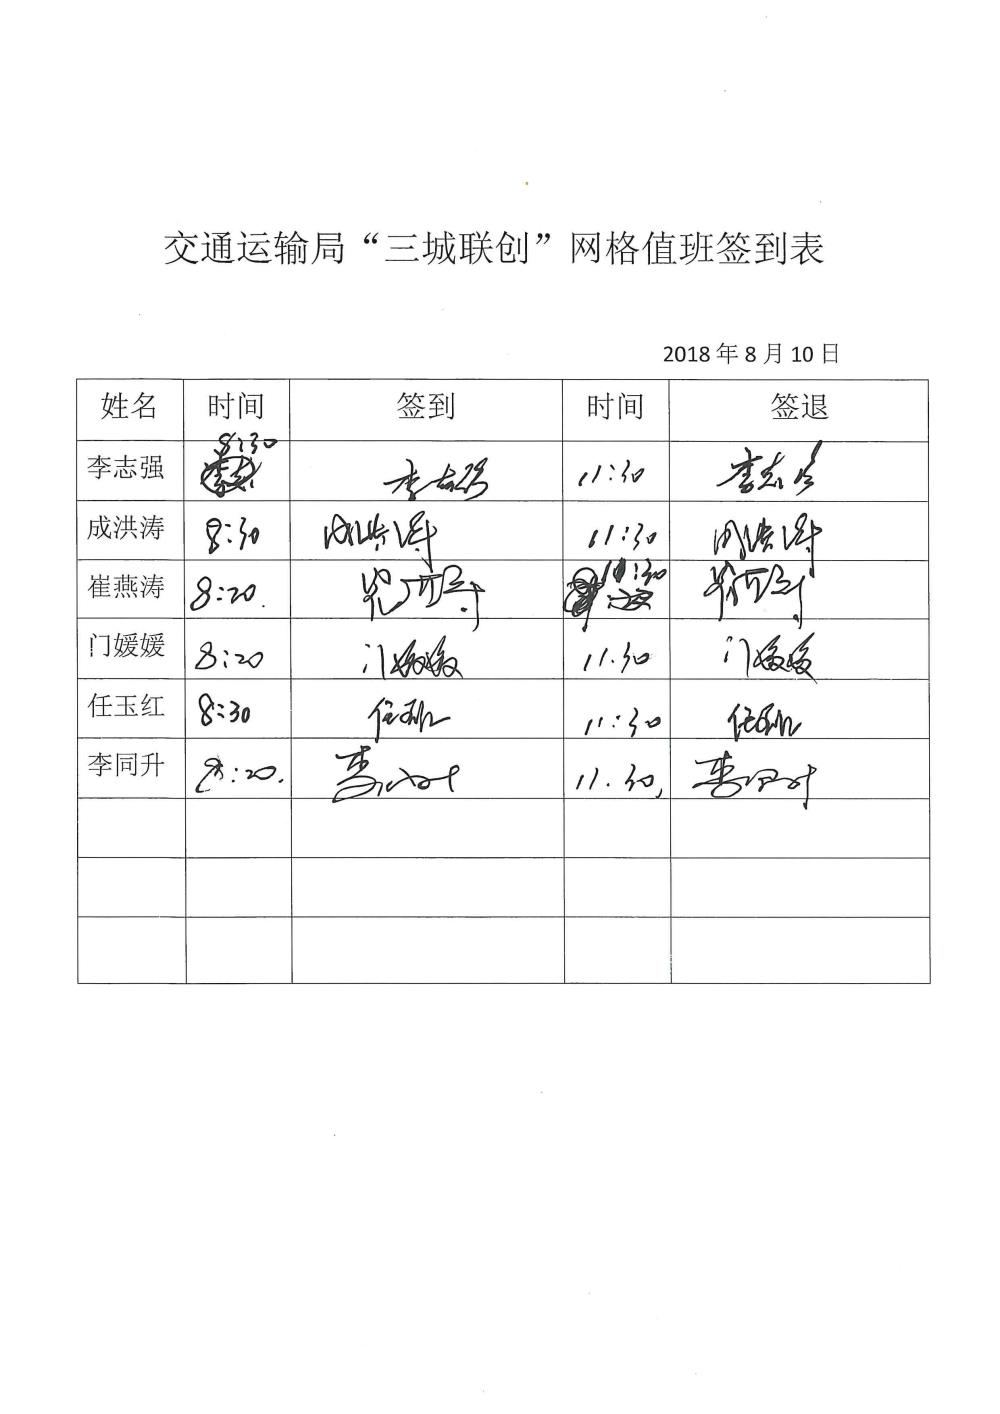 交通运输局“三城联创”网格值班签到表
2018年8月10日
姓名 时间 签到 时间 签退
李志强 8:30 李志强 11:30 李志强
成洪涛 8:30 成洪涛 11:30 成洪涛
崔燕涛 8:20. 崔燕涛 11:30 崔燕涛
门媛媛 8:20 门媛媛 11.30 门媛媛
任玉红 8:30 任玉红 11:30 任玉红
李同升 8:20. 李同升 11.30, 李同升